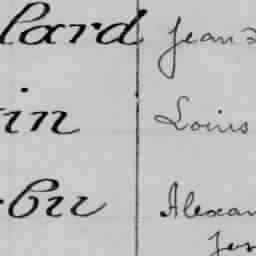 lard Jean
in Louis
bu Alexan